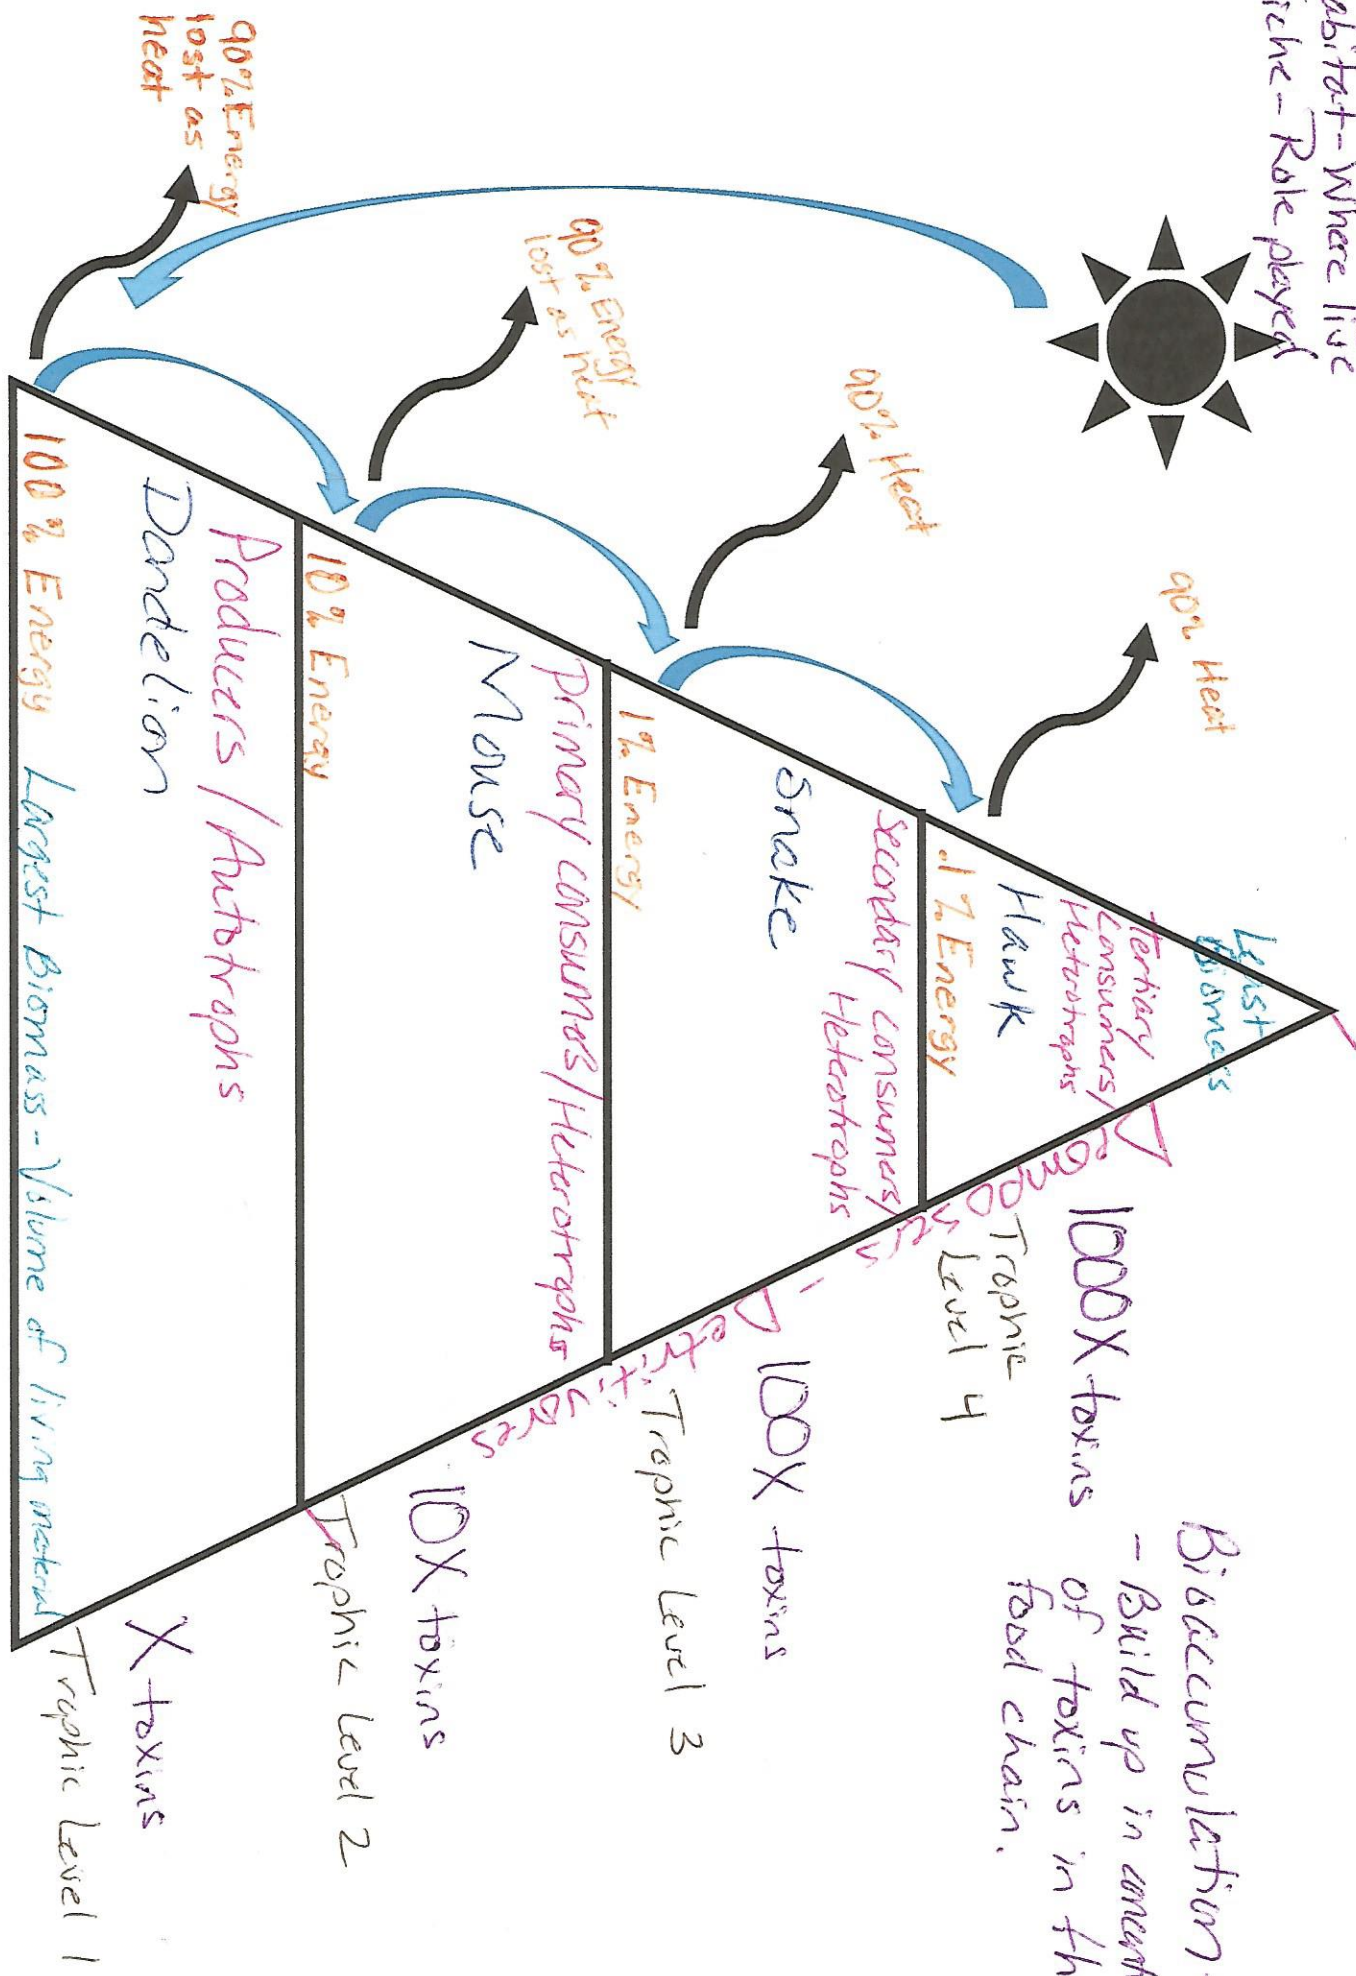 abitat - Where live
iche - Role played
90% Energy
lost as
heat
90% Energy
lost as heat
90% Heat
90% Heat
Least
Biomass
Tertiary
Consumers/
Heterotrophs
Hawk
.1% Energy
Secondary Consumers/
Heterotrophs
Snake
1% Energy
Primary consumers/Heterotrophs
Mouse
10% Energy
Producers/Autotrophs
Dandelion
100% Energy Largest Biomass -- Volume of living material
Decomposers - Detritivores
1000X toxins
Trophic
Level 4
100X toxins
Trophic Level 3
10X toxins
Trophic Level 2
X toxins
Trophic Level 1
Bioaccumulation
- Build up in concent
of toxins in th
food chain.